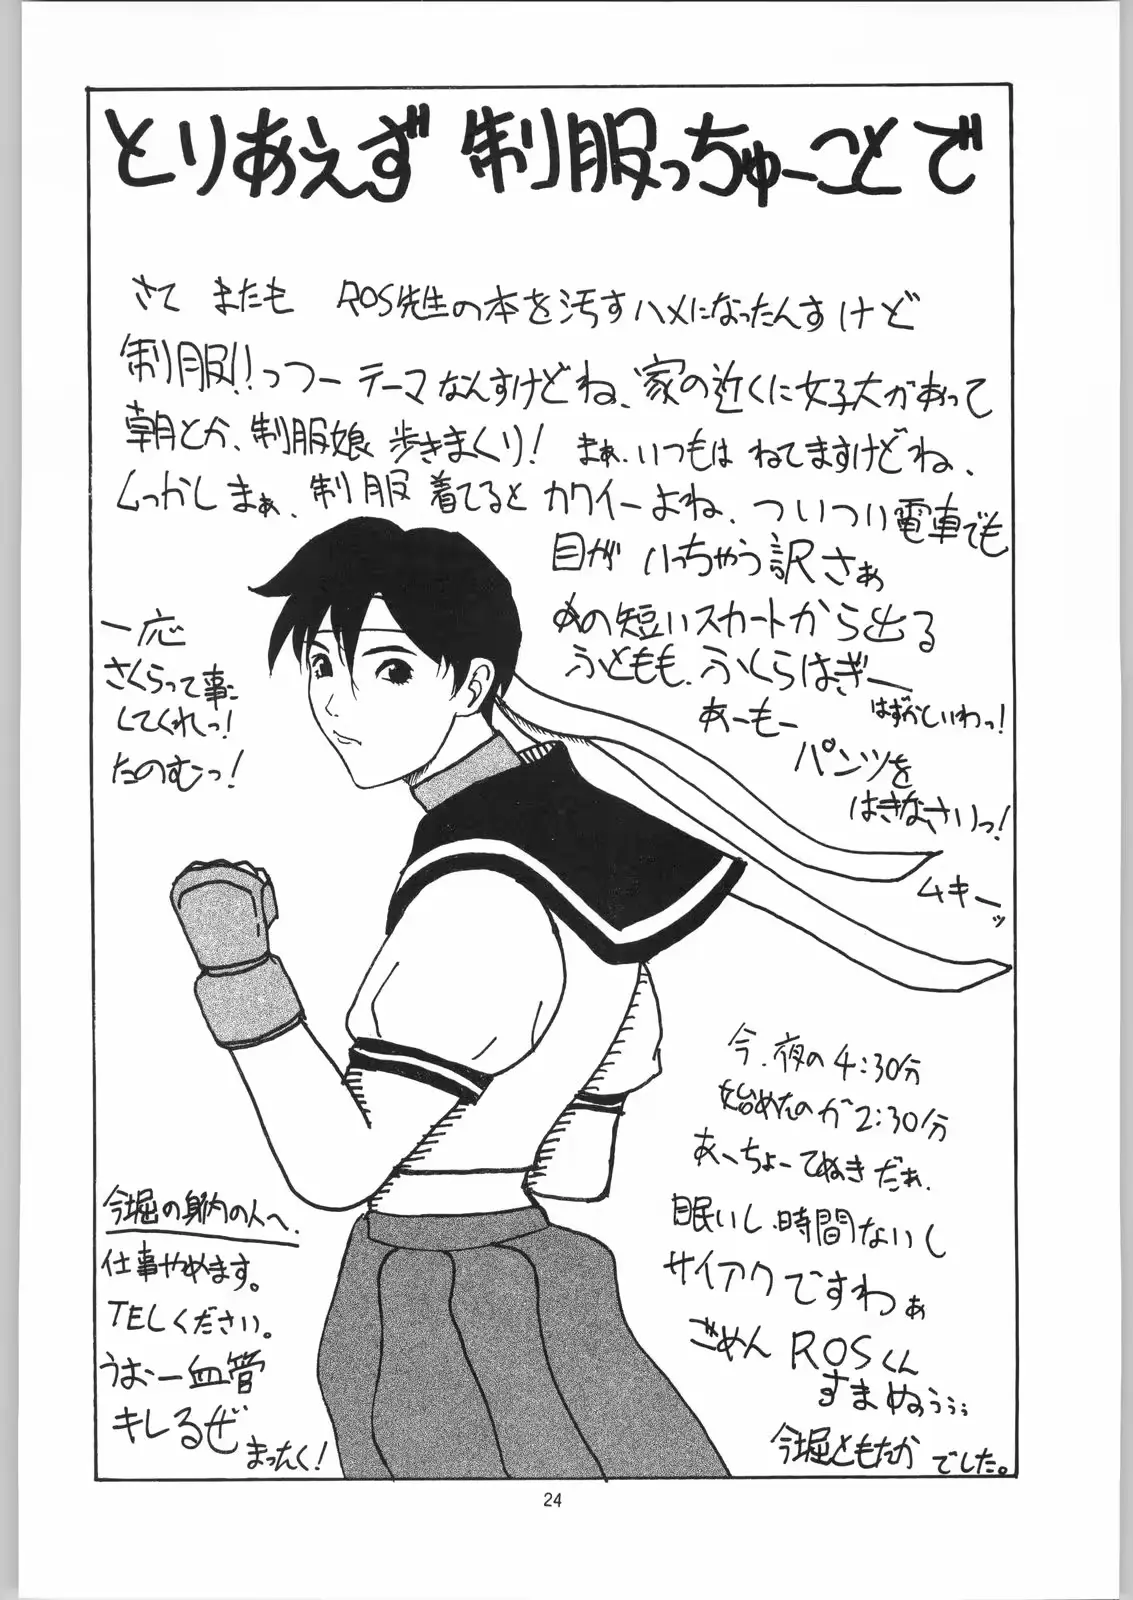 とりあえず 制服っちゅーことで
さて またも ROS先生の本を汚すハメになったんすけど
制服!!っつー テーマなんすけどね、家の近くに女子大があって
朝とか、制服娘 歩きまくり! まぁ、いつもは ねてますけどね、
しっかしまぁ、制服 着てると カワイーよね、ついつい電車でも
目が いっちゃう訳さぁ
あの短いスカートから出る
ふともも、ふくらはぎー
はずかしいわっ!
あーもー
パンツを
はきなさいっ!
ムキーッ
一応
さくらって事に
してくれっ!
たのむっ!
今、夜の4:30分
始めたのが2:30分
あーちょーてぬきだぁ、
眠いし、時間ないし
サイアクですわぁ
ごめん ROSくん
すまぬぅぅぅ
今堀ともたか でした。
今堀の身内の人へ、
仕事やめます。
TELください。
うおー血管
キレるぜ まったく!
24